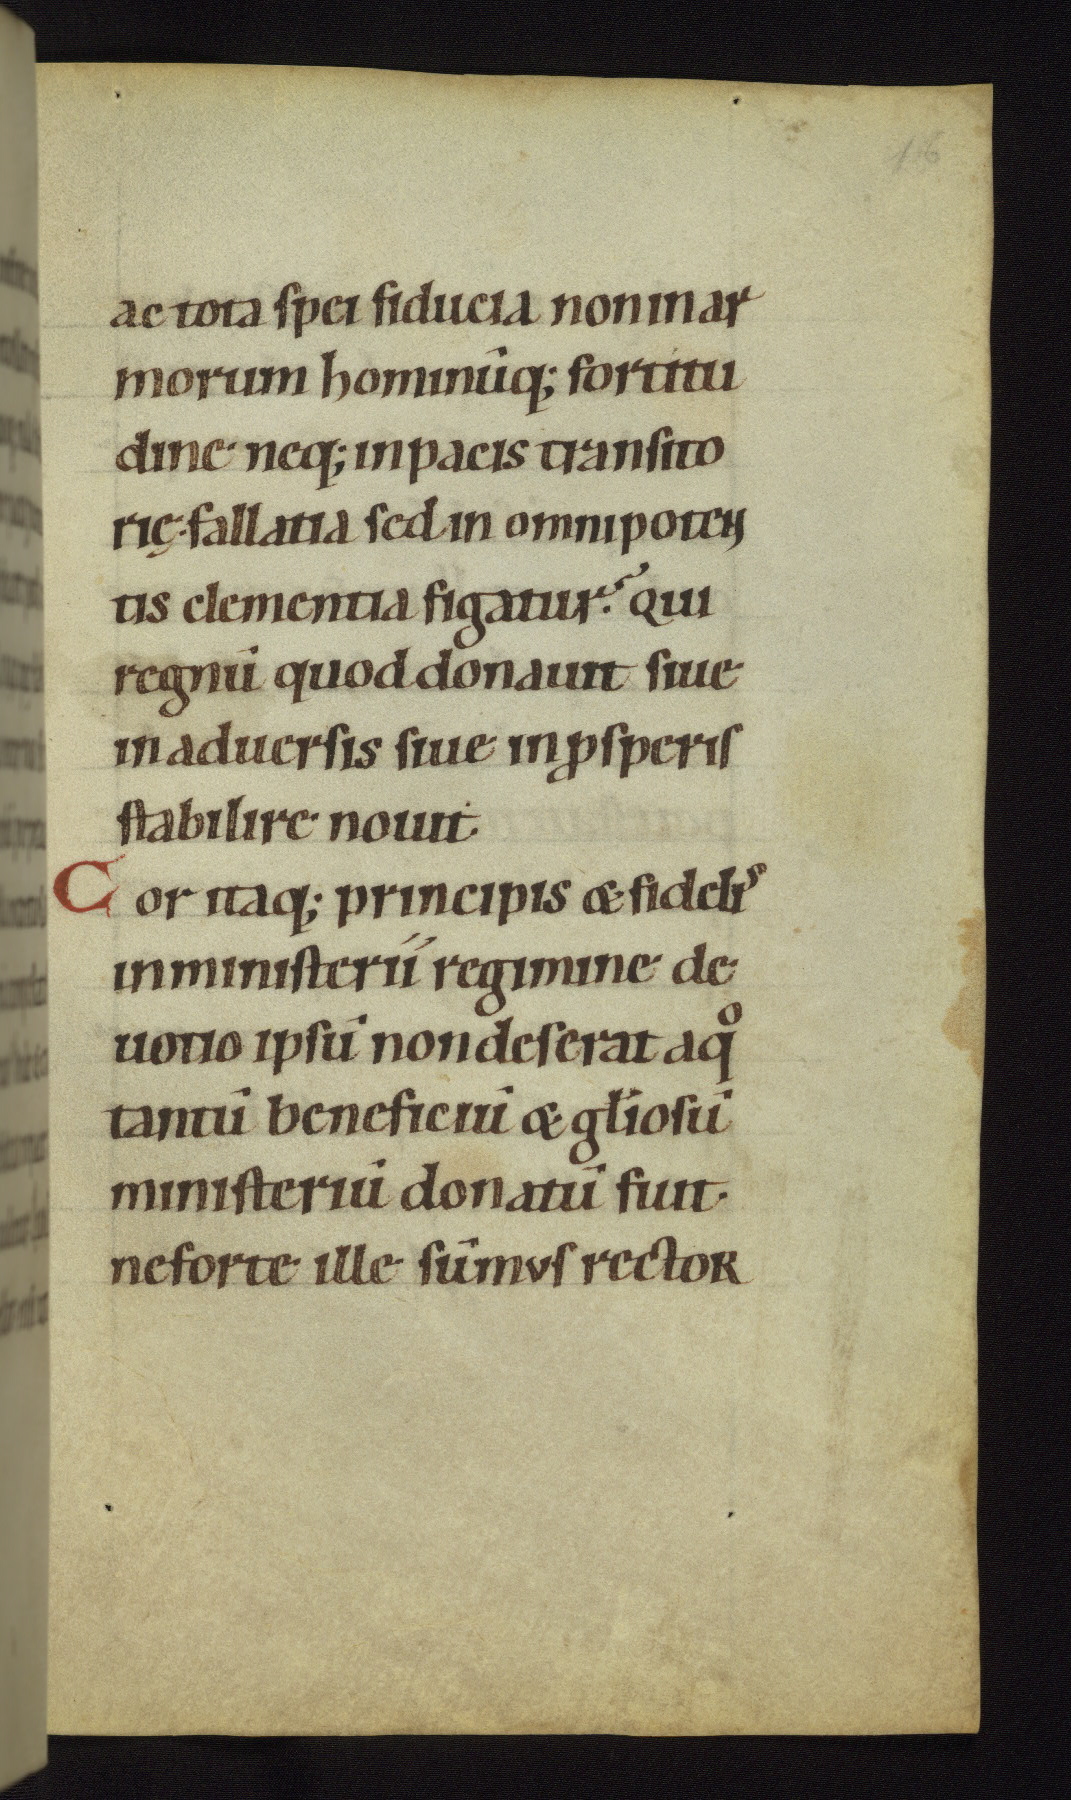 16
ac tota spei fiducia non in ar
morum hominūq; fortitu
dine neq; in pacis transito
rię fallatia sed in omnipoten
tis clementia figatur. Qui
regnū quod donauit siue
in aduersis siue in ꝓsperis
stabilire nouit.
Cor itaq; principis & fidelis
in ministerii regimine de
uotio ipsū non deserat a qͦ
tantū beneficiū & gl̄iosū
ministeriū donatū fuit.
ne forte ille sūmus rector